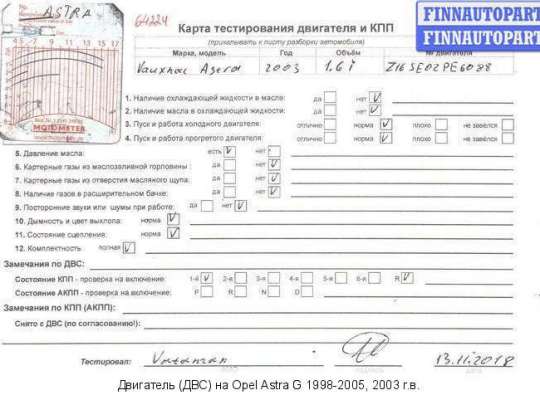 FINNAUTOPART
FINNAUTOPART
ASTRA
64224
Карта тестирования двигателя и КПП
(прикалывать к листу разборки автомобиля)
Марка, модель Год Объём № двигателя
Vauxhall Astra 2003 1.6i Z16SE02PE6098
4-5 7 9 11 13 15 17
MOTOMETER
1. Наличие охлаждающей жидкости в масле: да нет V
2. Наличие масла в охлаждающей жидкости: да нет V
3. Пуск и работа холодного двигателя: отлично норма V плохо не завелся
4. Пуск и работа прогретого двигателя: отлично норма V плохо не завелся
5. Давление масла: есть V нет
6. Картерные газы из маслозаливной горловины: да нет V
7. Картерные газы из отверстия масляного щупа: да нет V
8. Наличие газов в расширительном бачке: да нет V
9. Посторонние звуки или шумы при работе: да нет V
10. Дымность и цвет выхлопа: норма V
11. Состояние сцепления: норма V
12. Комплектность полная V
Замечания по ДВС:
Состояние КПП - проверка на включение: 1-я V 2-я 3-я 4-я 5-я 6-я R V
Состояние АКПП - проверка на включение: P R N D
Замечания по КПП (АКПП):
Снято с ДВС (по согласованию!):
Тестировал: 13.11.2018
Двигатель (ДВС) на Opel Astra G 1998-2005, 2003 г.в.